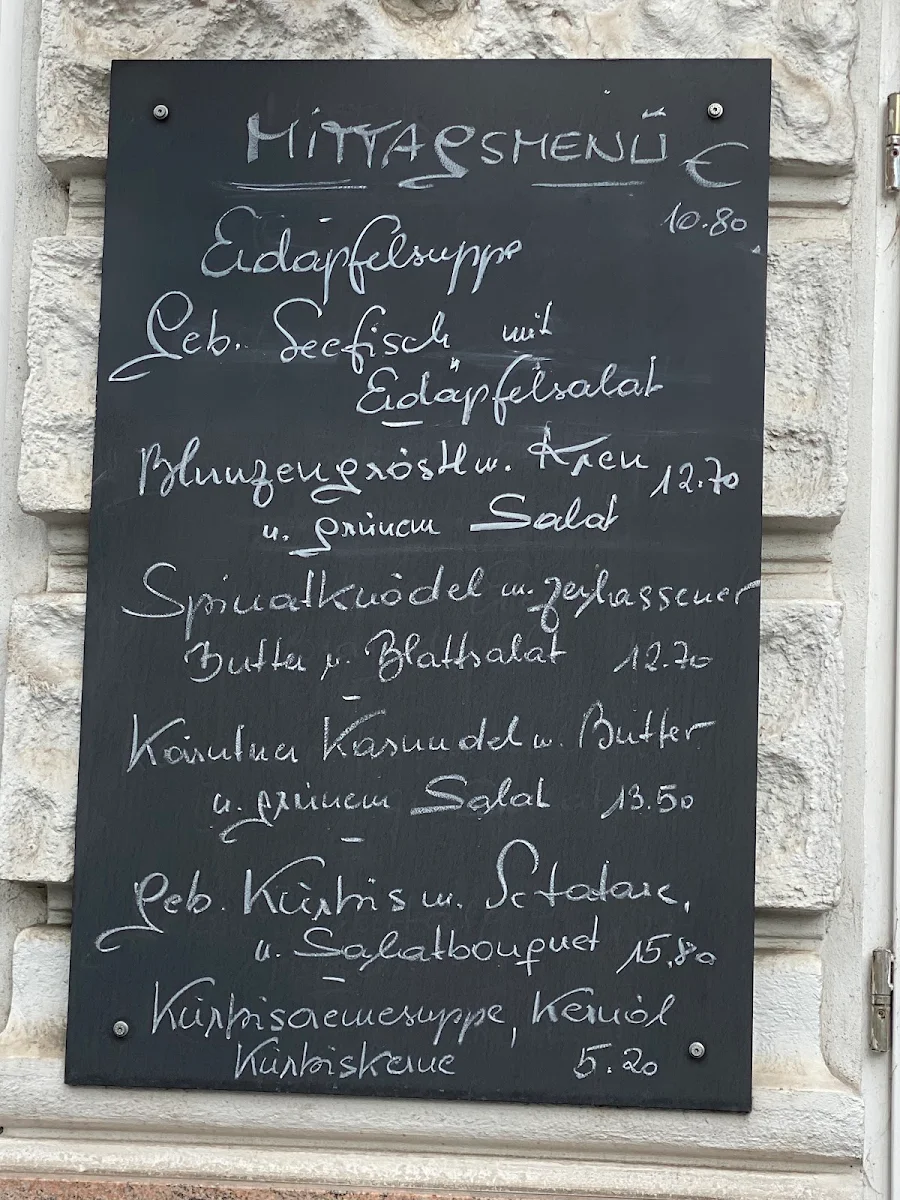 MITTAGSMENÜ €
10.80
Erdäpfelsuppe
Geb. Seefisch mit
Erdäpfelsalat
Blunzengröstl m. Kren 12.70
u. grünem Salat
Spinatknödel m. zerlassener
Butter u. Blattsalat 12.70
Kärntner Kasnudel m. Butter
u. grünem Salat 13.50
Geb. Kürbis m. Sc. tatare,
u. Salatbouquet 15.80
Kürbiscremesuppe, Kernöl
Kürbiskerne 5.20